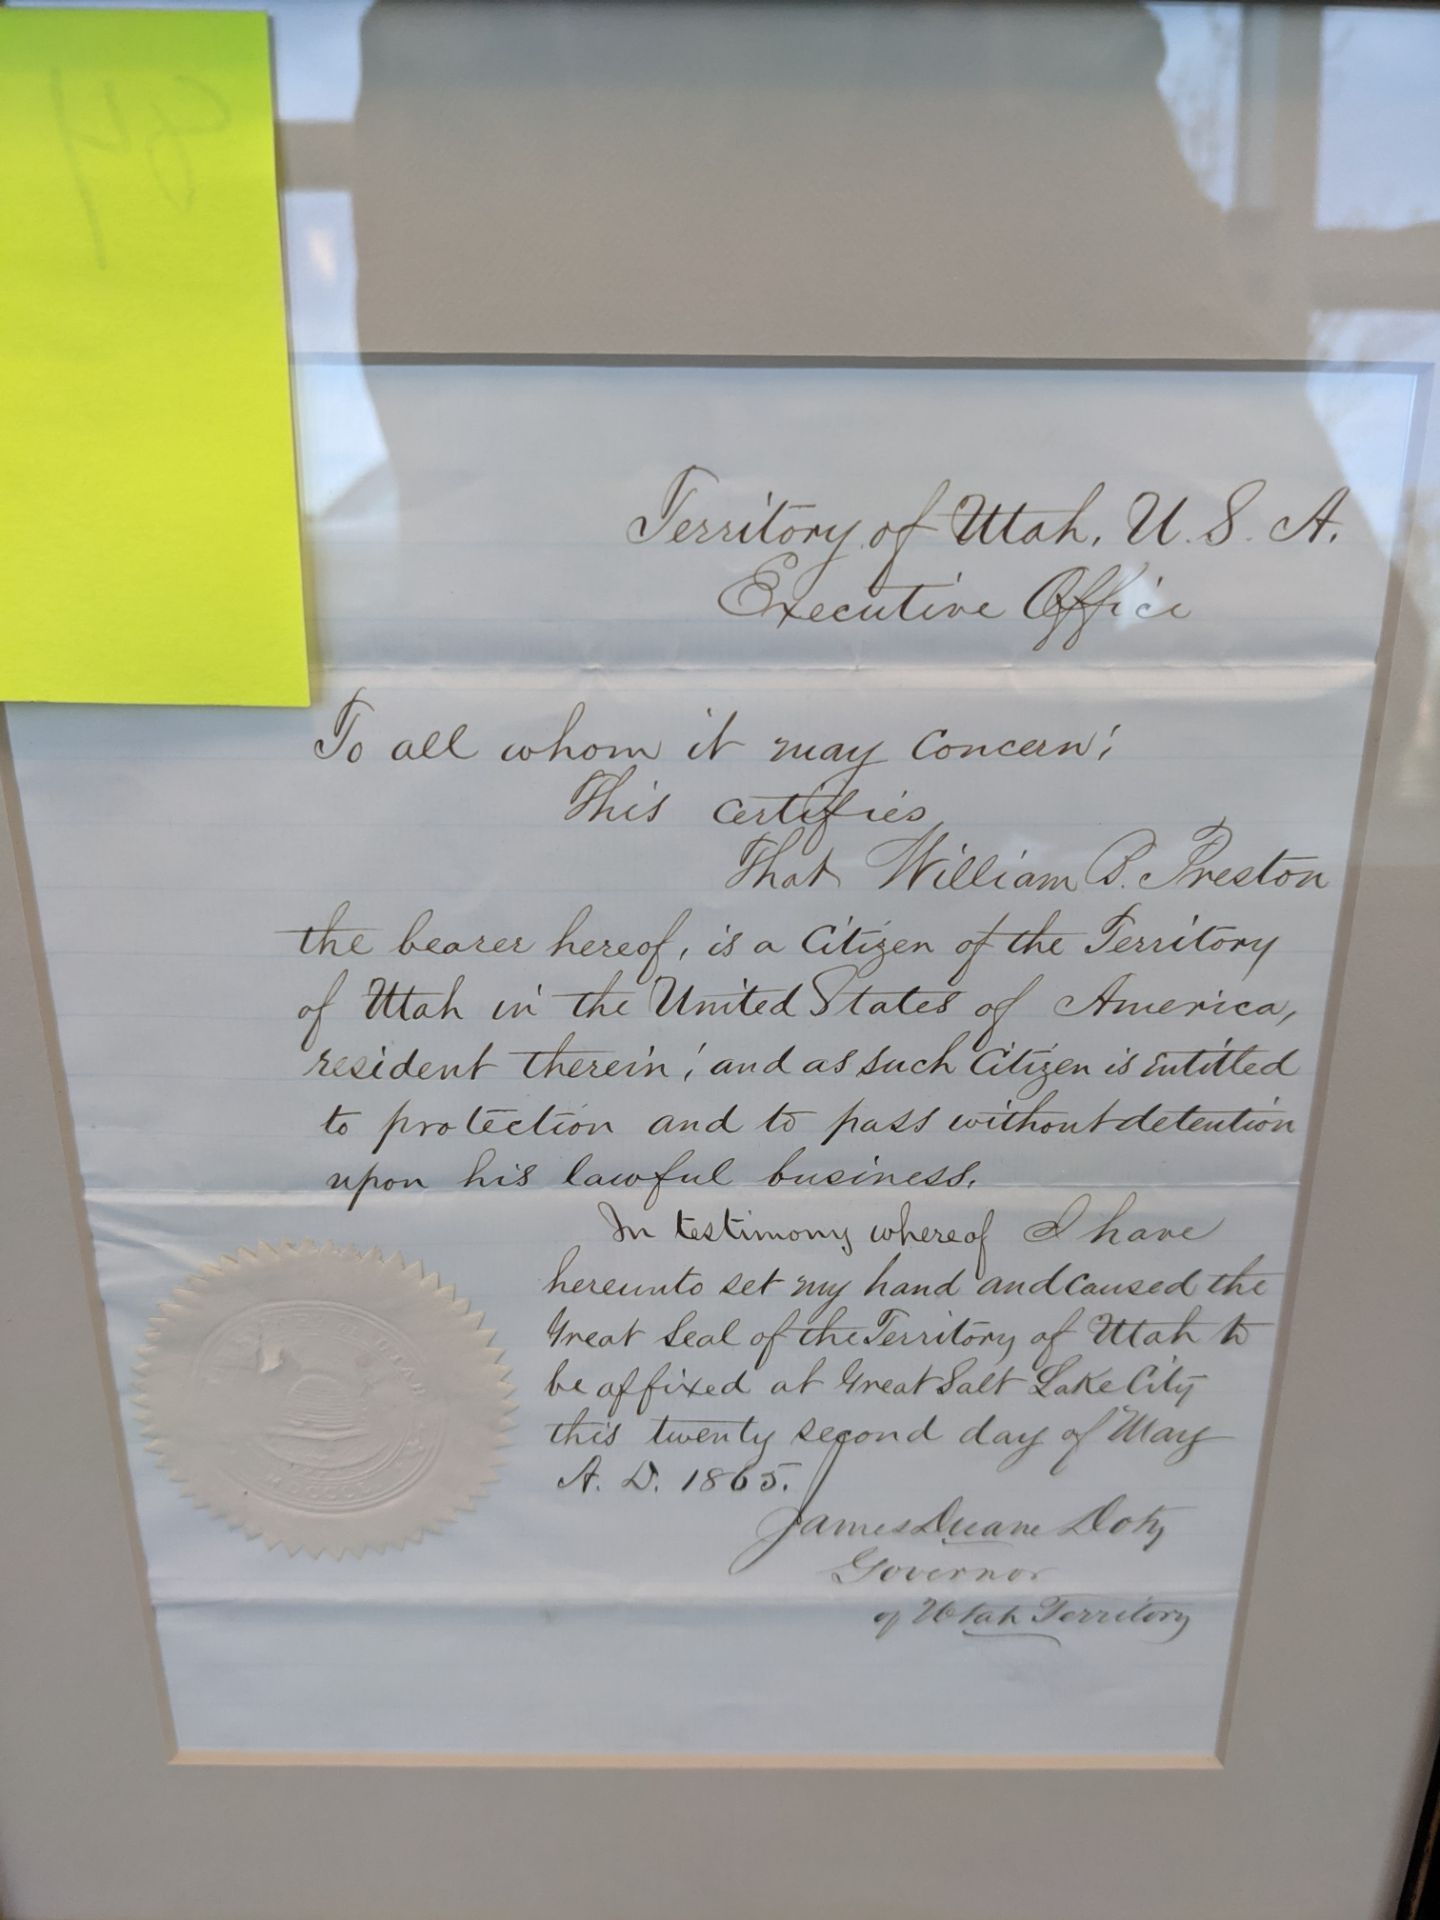 84
Territory of Utah, U. S. A.
Executive Office
To all whom it may concern;
This certifies
That William B. Preston
the bearer hereof, is a Citizen of the Territory
of Utah in the United States of America,
resident therein; and as such Citizen is intitled
to protection and to pass without detention
upon his lawful business.
In testimony whereof I have
hereunto set my hand and caused the
Great Seal of the Territory of Utah to
be affixed at Great Salt Lake City
this twenty second day of May
A. D. 1865.
James Duane Doty
Governor
of Utah Territory
UTAH